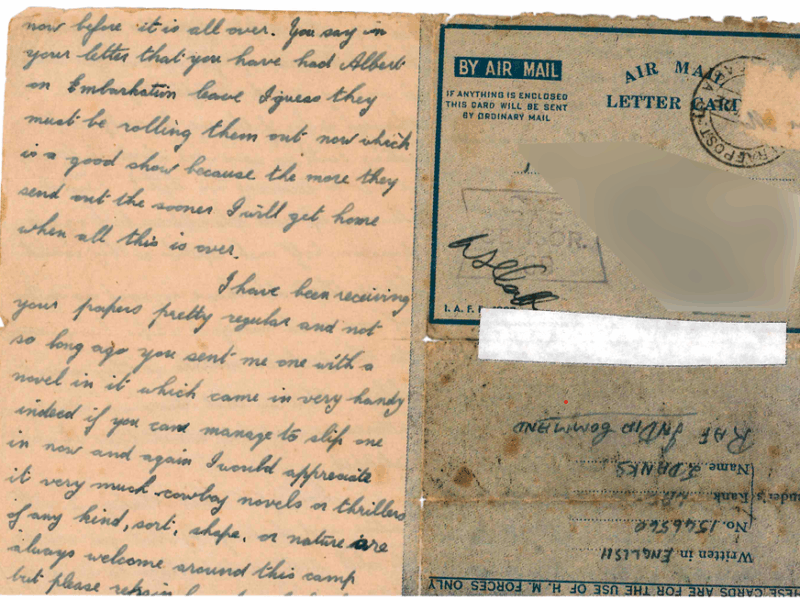 now before it is all over. You say in
your letter that you have had Albert
on Embarkation leave I guess they
must be rolling them out now which
is a good show because the more they
send out the sooner I will get home
when all this is over.
I have been receiving
your papers pretty regular and not
so long ago you sent me one with a
novel in it which came in very handy
indeed if you can manage to slip one
in now and again I would appreciate
it very much cowboy novels or thrillers
of any kind, sort, shape, or nature are
always welcome around this camp
but please
BY AIR MAIL
IF ANYTHING IS ENCLOSED
THIS CARD WILL BE SENT
BY ORDINARY MAIL
AIR MAIL
LETTER CARD
POST
CENSOR.
I. A. F.
RAF INDIA COMMAND
Name
Rank
No. 1546560
Written in ENGLISH
THESE CARDS ARE FOR THE USE OF H. M. FORCES ONLY